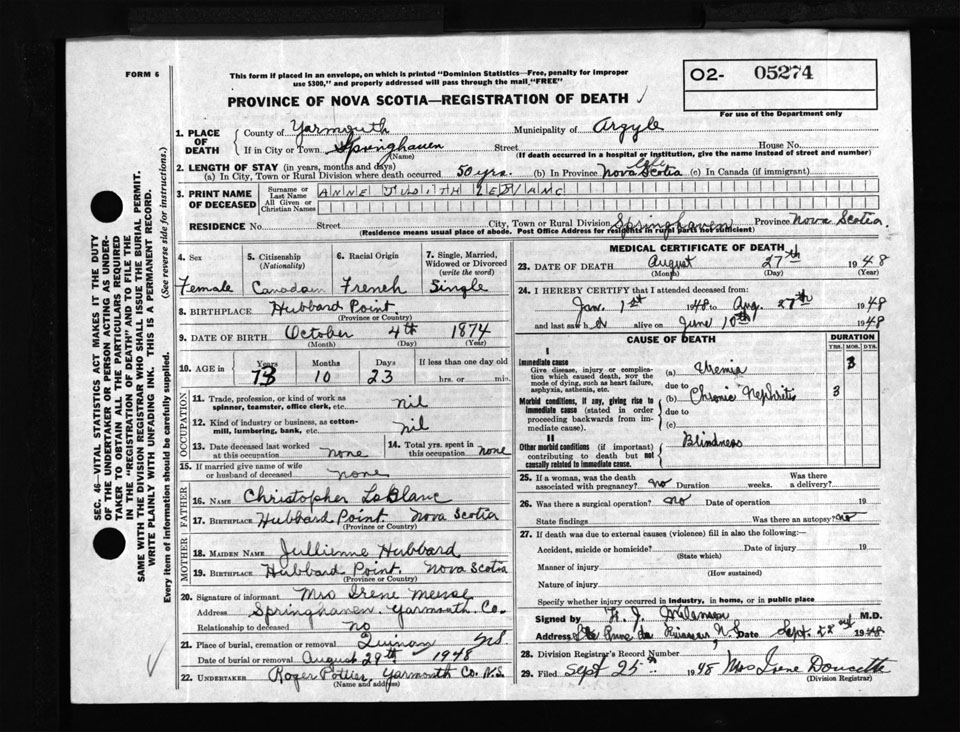 FORM 6
This form if placed in an envelope, on which is printed "Dominion Statistics—Free, penalty for improper
use $300," and properly addressed will pass through the mail "FREE"
O2- 05274
For use of the Department only
PROVINCE OF NOVA SCOTIA—REGISTRATION OF DEATH
1. PLACE OF DEATH
County of Yarmouth Municipality of Argyle
If in City or Town Springhaven Street House No.
(Name) (If death occurred in a hospital or institution, give the name instead of street and number)
2. LENGTH OF STAY (in years, months and days)
(a) In City, Town or Rural Division where death occurred 50 yrs. (b) In Province Life Nova Scotia (c) In Canada (if immigrant)
3. PRINT NAME OF DECEASED
Surname or Last Name ANNE JUDITH LEBLANC
All Given or Christian Names
RESIDENCE No. Street City, Town or Rural Division Springhaven Province Nova Scotia
(Residence means usual place of abode. Post Office Address for residents in rural parts not sufficient)
4. Sex 5. Citizenship (Nationality) 6. Racial Origin 7. Single, Married, Widowed or Divorced (write the word)
Female Canadain French Single
8. BIRTHPLACE Hubbard Point
(Province or Country)
9. DATE OF BIRTH October 4th 1874
(Month) (Day) (Year)
10. AGE in Years Months Days If less than one day old
73 10 23 hrs. or min.
OCCUPATION
11. Trade, profession, or kind of work as spinner, teamster, office clerk, etc. nil
12. Kind of industry or business, as cotton-mill, lumbering, bank, etc. nil
13. Date deceased last worked at this occupation none 14. Total yrs. spent in this occupation none
15. If married give name of wife or husband of deceased none
FATHER
16. NAME Christopher LeBlanc
17. BIRTHPLACE Hubbard Point Nova Scotia
(Province or Country)
MOTHER
18. MAIDEN NAME Jullienne Hubbard
19. BIRTHPLACE Hubbard Point Nova Scotia
(Province or Country)
20. Signature of informant Mrs Irene Meuse
Address Springhaven Yarmouth Co.
Relationship to deceased no
21. Place of burial, cremation or removal Quinan NS.
Date of burial or removal August 29th 1948
22. UNDERTAKER Roger Pottier, Yarmouth Co. N.S.
(Name and address)
MEDICAL CERTIFICATE OF DEATH
23. DATE OF DEATH August 27th 1948
(Month) (Day) (Year)
24. I HEREBY CERTIFY that I attended deceased from:
Jan. 1st 1948 to Aug. 27th 1948
and last saw her alive on June 10th 1948
CAUSE OF DEATH DURATION
YRS. MOS. DYS.
I
Immediate cause
Give disease, injury or complication which caused death, not the mode of dying, such as heart failure, asphyxia, asthenia, etc.
(a) Uremia 3
due to
Morbid conditions, if any, giving rise to immediate cause (stated in order proceeding backwards from immediate cause).
(b) Chronic Nephritis 3
due to
(c)
II
Other morbid conditions (if important) contributing to death but not causally related to immediate cause.
Blindness
25. If a woman, was the death associated with pregnancy? no Duration weeks. Was there a delivery?
26. Was there a surgical operation? no Date of operation 19
State findings Was there an autopsy? no
27. If death was due to external causes (violence) fill in also the following:—
Accident, suicide or homicide? Date of injury 19
(State which)
Manner of injury
(How sustained)
Nature of injury
Specify whether injury occurred in industry, in home, or in public place
Signed by Melanson M.D.
Address N.S. Date Sept. 1948
28. Division Registrar's Record Number
29. Filed Sept 25th 1948 Mrs Irene Doucette
(Division Registrar)
SEC. 46—VITAL STATISTICS ACT MAKES IT THE DUTY
OF THE UNDERTAKER OR PERSON ACTING AS UNDER-
TAKER TO OBTAIN ALL THE PARTICULARS REQUIRED
IN THE "REGISTRATION OF DEATH" AND TO FILE THE
SAME WITH THE DIVISION REGISTRAR WHO SHALL ISSUE THE BURIAL PERMIT.
WRITE PLAINLY WITH UNFADING INK. THIS IS A PERMANENT RECORD.
Every item of information should be carefully supplied. (See reverse side for instructions.)